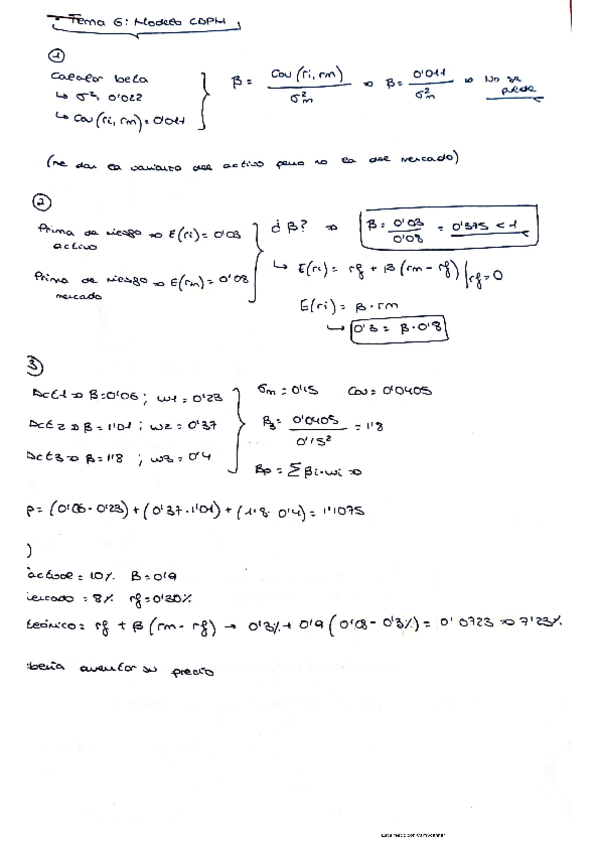 Tema 6: Modelo CAPM
1
Calcular beta
↳ σ², 0'022
↳ Cov(ri, rm) = 0'011
β = Cov(ri, rm) / σ²m ⇒ β = 0'011 / σ²m ⇒ No se puede
(me dan la varianza del activo pero no la del mercado)
2
Prima de riesgo activo ⇒ E(ri) = 0'03
Prima de riesgo mercado ⇒ E(rm) = 0'08
¿β? ⇒ β = 0'03 / 0'08 = 0'375 < 1
↳ E(ri) = rf + β(rm - rf) | rf = 0
E(ri) = β · rm
↳ 0'3 = β · 0'8
3
Act1 ⇒ β = 0'06 ; w1 = 0'23
Act2 ⇒ β = 1'01 ; w2 = 0'37
Act3 ⇒ β = 1'8 ; w3 = 0'4
σm = 0'15 Cov = 0'0405
β3 = 0'0405 / 0'15² = 1'8
βp = Σ βi · wi ⇒
p = (0'06 · 0'23) + (0'37 · 1'01) + (1'8 · 0'4) = 1'1075
)
actual = 10% β = 0'9
ercado = 8% rf = 0'30%
teórico = rf + β(rm - rf) → 0'3% + 0'9(0'08 - 0'3%) = 0'0723 ⇒ 7'23%
bería aumentar su precio